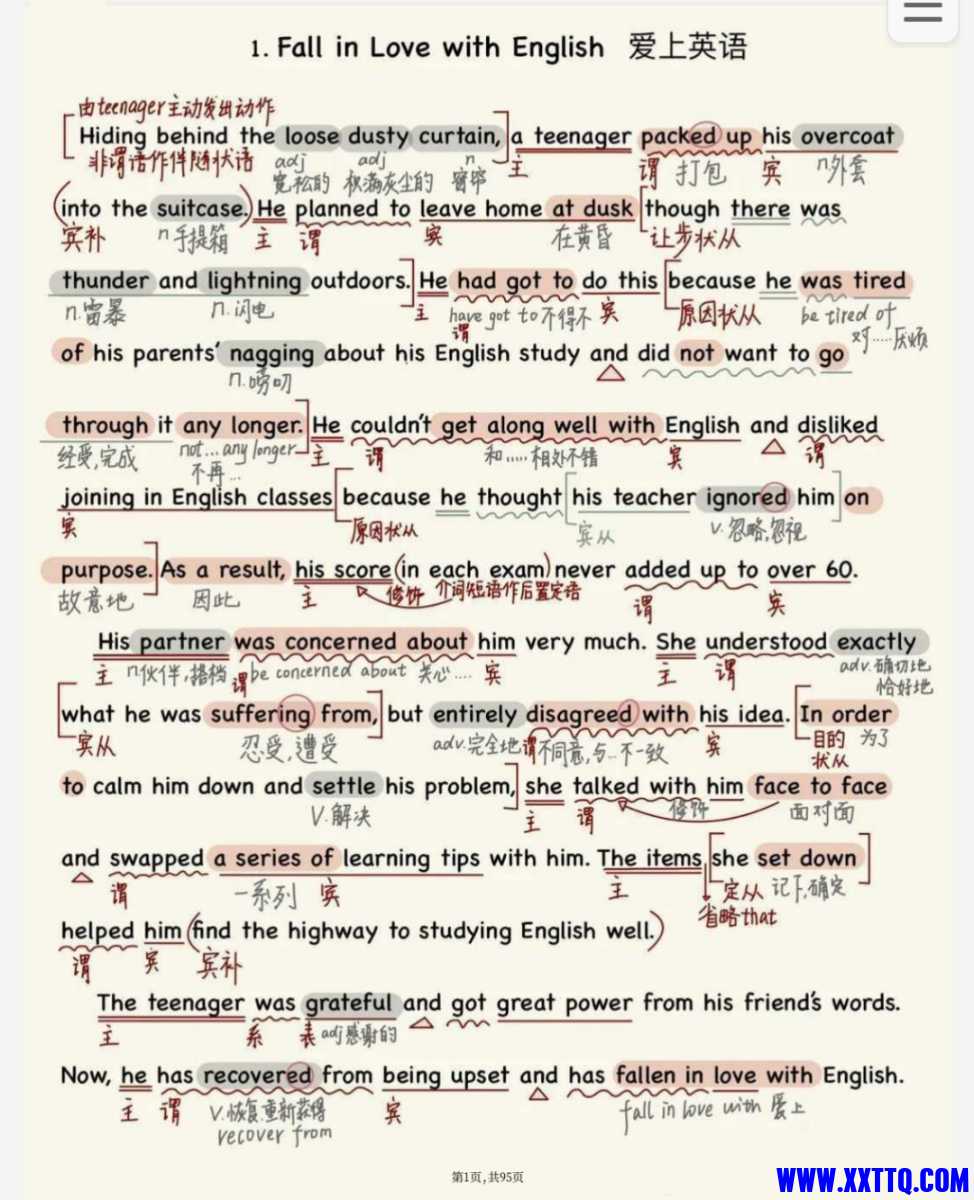 1. Fall in Love with English 爱上英语
由teenager主动发出动作
Hiding behind the loose dusty curtain, a teenager packed up his overcoat
非谓语作伴随状语 adj adj n 主 谓 打包 宾 n外套
宽松的 积满灰尘的 窗帘
into the suitcase. He planned to leave home at dusk though there was
宾补 n手提箱 主 谓 宾 在黄昏 让步状从
thunder and lightning outdoors. He had got to do this because he was tired
n.雷暴 n.闪电 主 have got to不得不 宾 原因状从 be tired of
谓 对……厌烦
of his parents' nagging about his English study and did not want to go
n.唠叨
through it any longer. He couldn't get along well with English and disliked
经受,完成 not...any longer 主 谓 和……相处不错 宾 谓
不再…
joining in English classes because he thought his teacher ignored him on
宾 原因状从 宾从 v.忽略,忽视
purpose. As a result, his score (in each exam) never added up to over 60.
故意地 因此 主 修饰 介词短语作后置定语 谓 宾
His partner was concerned about him very much. She understood exactly
主 n伙伴,搭档 谓 be concerned about 关心… 宾 主 谓 adv.确切地
恰好地
what he was suffering from, but entirely disagreed with his idea. In order
宾从 忍受,遭受 adv.完全地 谓 不同意,与…不一致 宾 目的 为了
状从
to calm him down and settle his problem, she talked with him face to face
V.解决 主 谓 修饰 面对面
and swapped a series of learning tips with him. The items she set down
谓 一系列 宾 主 定从 记下,确定
省略that
helped him (find the highway to studying English well.)
谓 宾 宾补
The teenager was grateful and got great power from his friend's words.
主 系 表 adj感谢的
Now, he has recovered from being upset and has fallen in love with English.
主 谓 V.恢复.重新获得 宾 fall in love with 爱上
recover from
第1页,共95页
WWW.XXTTQ.COM